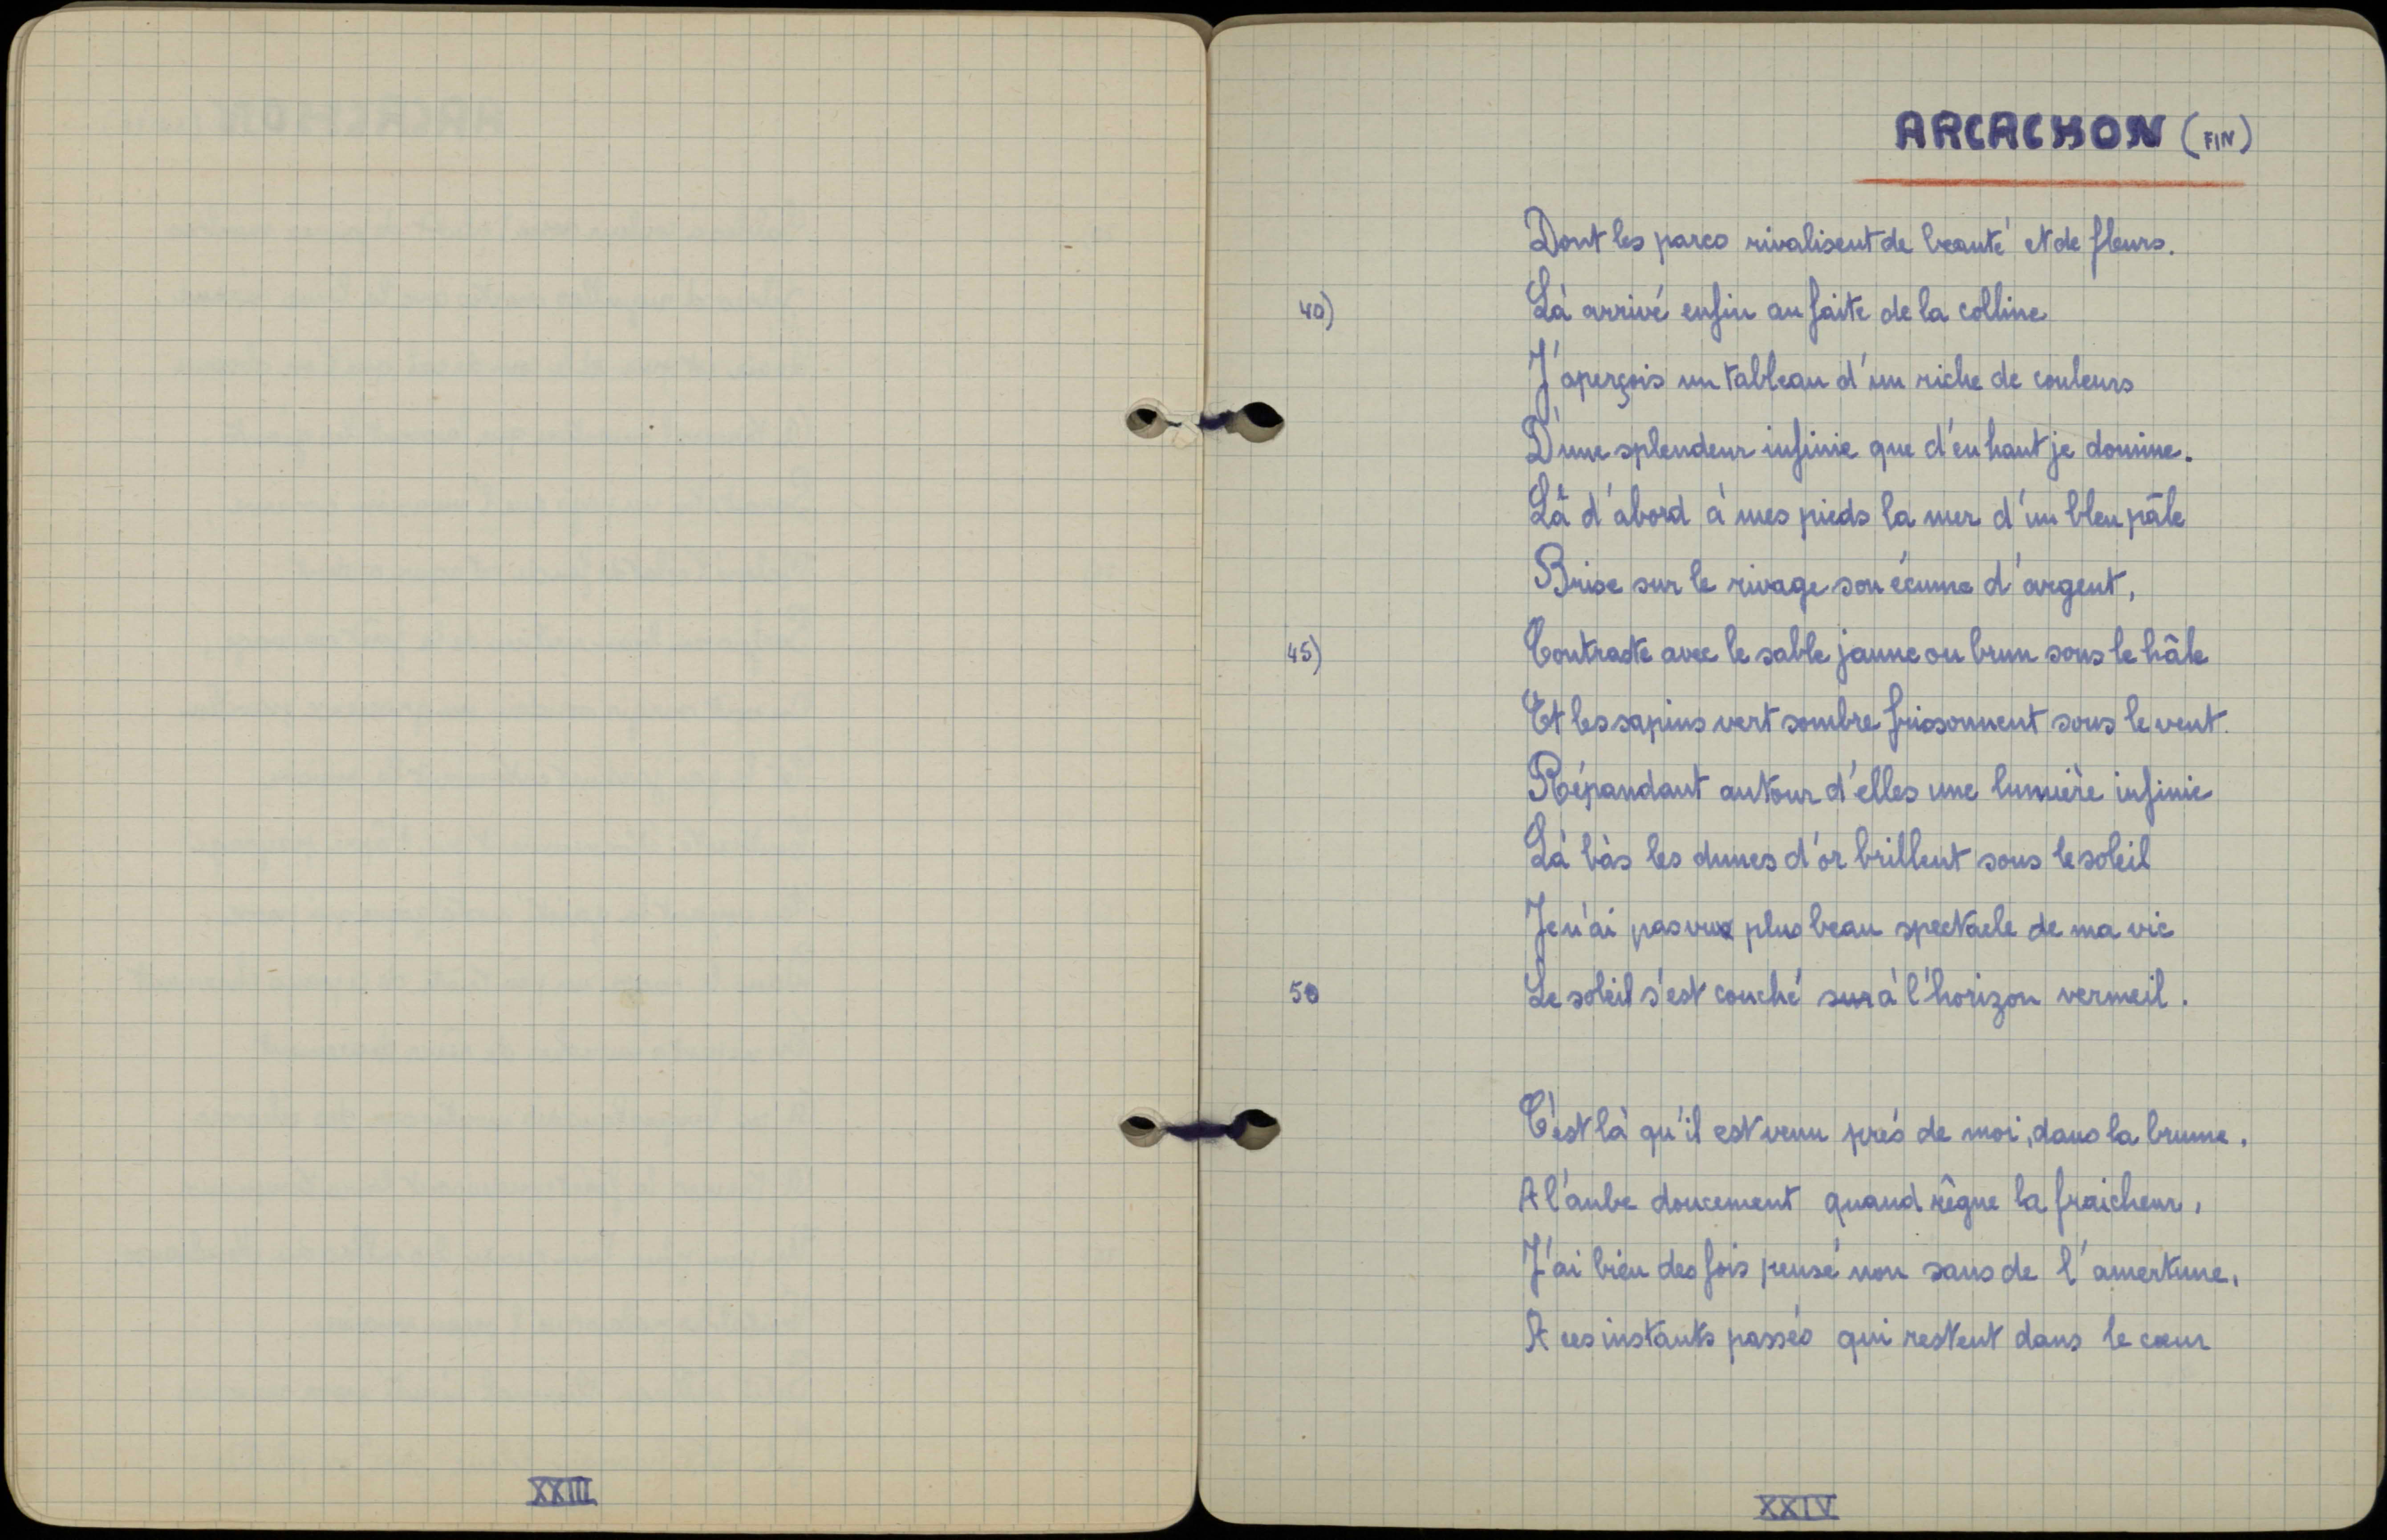 XXIII
ARCACHON (FIN)
Dont les parcs rivalisent de beauté et de fleurs.
40) Là arrivé enfin au faite de la colline
J'aperçois un tableau d'un riche de couleurs
D'une splendeur infinie que d'en haut je domine.
Là d'abord à mes pieds la mer d'un bleu pâle
Brise sur le rivage son écume d'argent,
45) Contraste avec le sable jaune ou brun sous le hâle
Et les sapins vert sombre frissonnent sous le vent.
Répandant autour d'elles une lumière infinie
Là bàs les dunes d'or brillent sous le soleil
Je n'ai pas vu plus beau spectacle de ma vie
50 Le soleil s'est couché sur à l'horizon vermeil.
C'est là qu'il est venu prés de moi, dans la brume.
A l'aube doucement quand règne la fraicheur,
J'ai bien des fois pensé non sans de l'amertume,
A ces instants passés qui restent dans le cœur
XXIV